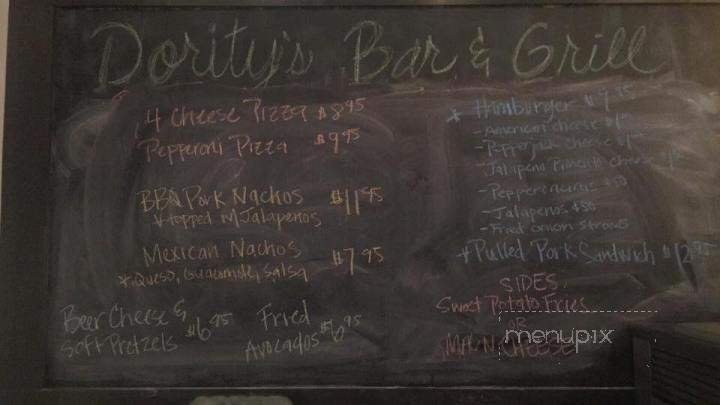 Dority's Bar & Grill
4 Cheese Pizza $8.95
Pepperoni Pizza $9.95
BBQ Pork Nachos $11.95
*topped w/Jalapenos
Mexican Nachos $7.95
*Queso, Guacamole, Salsa
Beer Cheese &
Soft Pretzels $6.95
Fried
Avocados $6.95
* Hamburger $9.95
- American cheese
- Pepperjack cheese
- Jalapeno Pimento Cheese
- Pepperoncinis
- Jalapenos $.50
- Fried onion straws
* Pulled Pork Sandwich $12.95
SIDES
Sweet Potato Fries
OR
Mac N. CHEESE
menupix